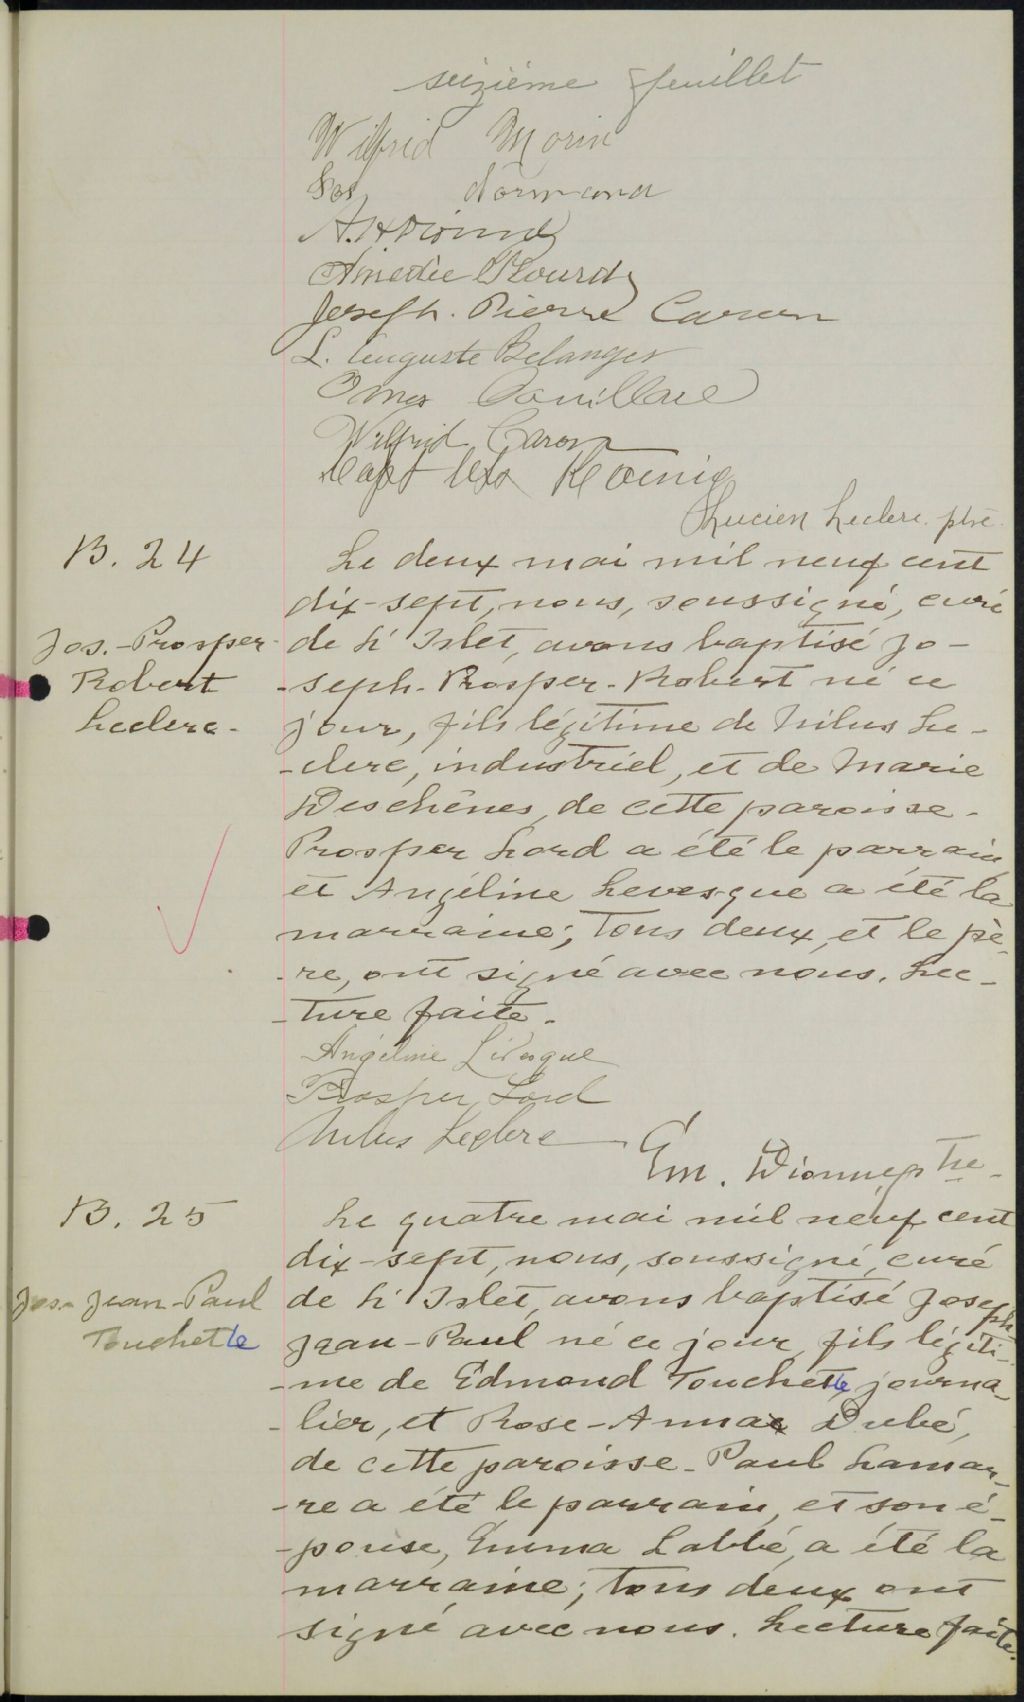 seizième feuillet
Wilfrid Morin
Jos Normand
A. H. Dionne
Amédée
Joseph. Pierre Caron
L. Auguste Belanger
Omer Couillard
Wilfrid Caron
Capt Koenig
Lucien Leclerc ptre.
B. 24
Jos.-Prosper-
Robert
Leclerc-
Le deux mai mil neuf cent
dix-sept, nous, soussigné, curé
de L'Islet, avons baptisé Jo-
-seph-Prosper-Robert né ce
jour, fils légitime de Nilus Le-
-clerc, industriel, et de Marie
Deschênes, de cette paroisse-
Prosper Lord a été le parrain,
et Angéline Levesque a été la
marraine; tous deux, et le pè-
-re, ont signé avec nous. Lec-
-ture faite-
Angéline Lévesque
Prosper Lord
Nilus Leclerc
Em. Dionne, ptre-
B. 25
Jos- Jean-Paul
Touchette
Le quatre mai mil neuf cent
dix-sept, nous, soussigné, curé
de L'Islet, avons baptisé Joseph
Jean-Paul né ce jour, fils légiti-
-me de Edmond Touchette, journa-
-lier, et Rose-Anna Dubé,
de cette paroisse- Paul Lamar-
-re a été le parrain, et son é-
-pouse, Emma Labbé, a été la
marraine; tous deux ont
signé avec nous. Lecture faite.